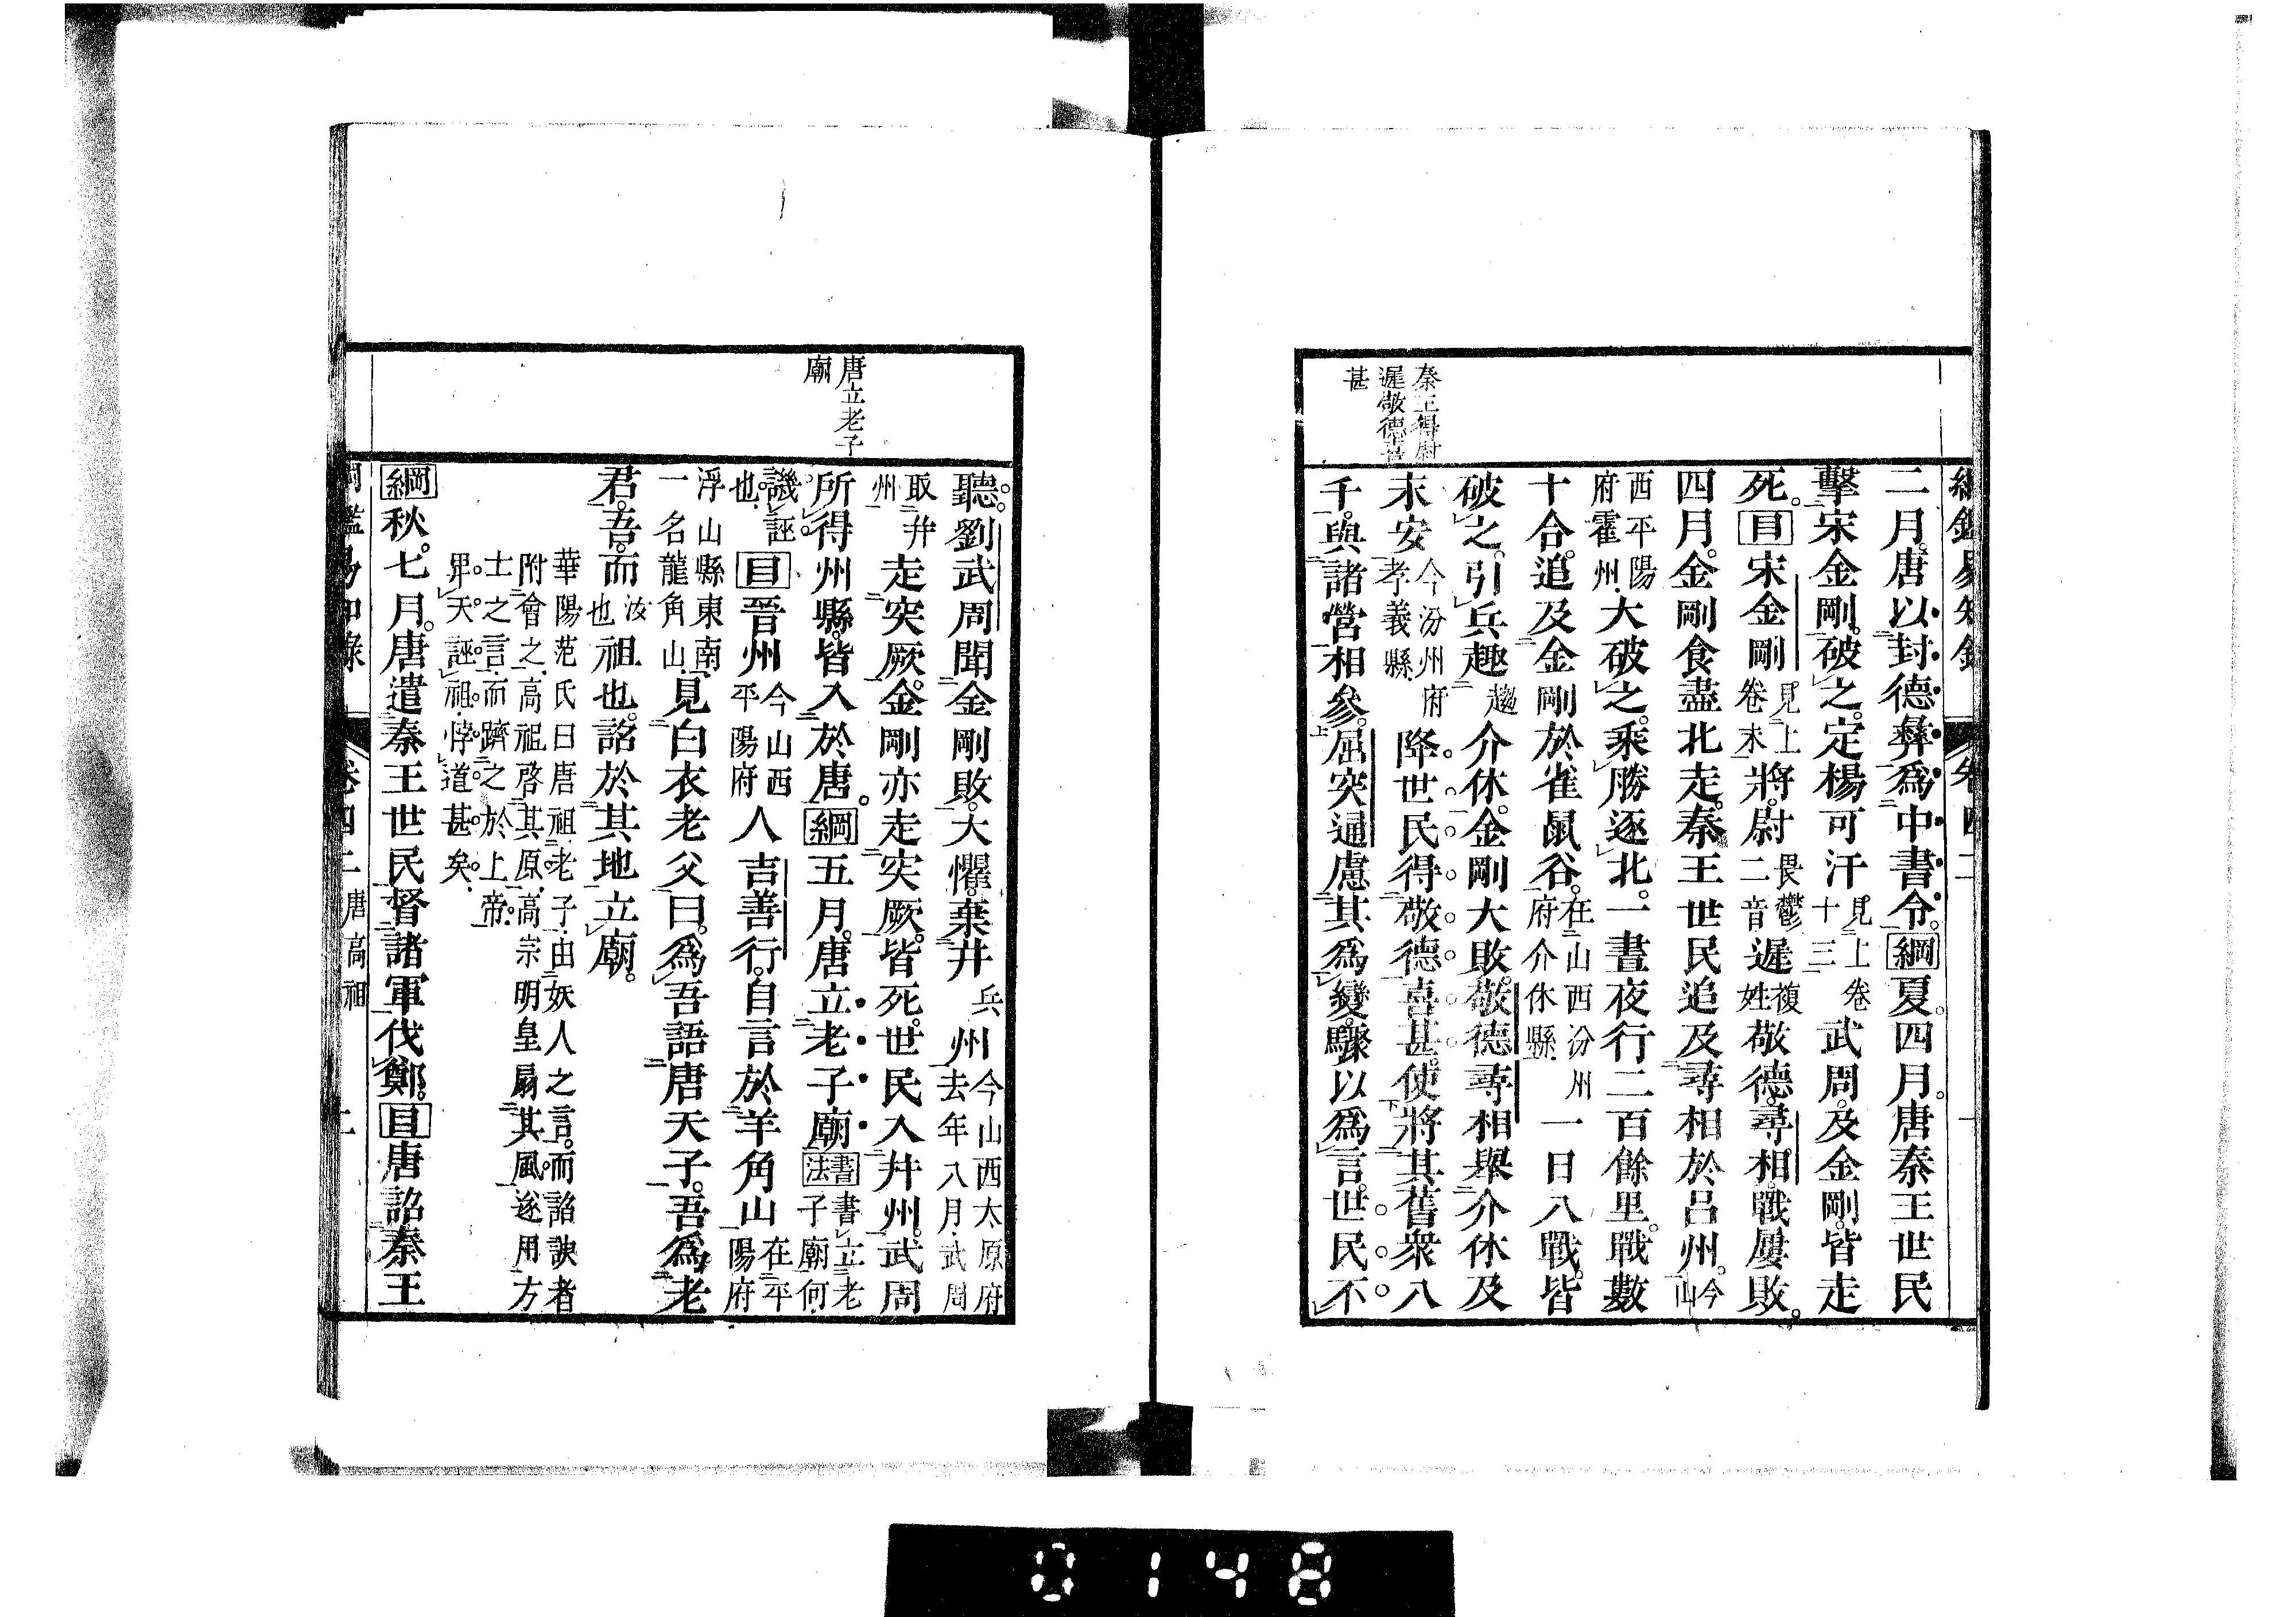 秦王得尉
遲敬德喜
甚
綱鑑易知錄
卷四二
二月。唐以封德彝爲中書令。綱夏。四月。唐秦王世民
擊宋金剛。破之。定楊可汗見上卷十三武周。及金剛。皆走
死。目宋金剛見上卷末將。尉畏鬱二音遲複姓敬德。尋相。戰屢敗。
四月。金剛食盡北走。秦王世民追及尋相於呂州。今山
西平陽府霍州大破之。乘勝逐北。一晝夜行二百餘里。戰數
十合。追及金剛於雀鼠谷。在山西汾州府介休縣一日八戰。皆
破之。引兵趣趨介休。金剛大敗。敬德尋相舉介休及
末安今汾州府孝義縣降。世民得敬德喜甚。使將其舊衆八
千。與諸營相參。屈突通慮其爲變。驟以爲言。世民不
唐立老子
廟
聽。劉武周聞金剛敗。大懼。棄幷兵州今山西太原府去年八月武周
取幷州走突厥。金剛亦走突厥。皆死。世民入幷州。武周
所得州縣。皆入於唐。綱五月。唐立老子廟書法書立老子廟何
譏誣也。目晉州今山西平陽府人吉善行。自言於羊角山在平陽府
浮山縣東南一名龍角山見白衣老父曰。爲吾語唐天子。吾爲老
君。吾。而汝也祖也。詔於其地立廟。
華陽范氏曰唐祖老子由妖人之言。而諂諛者
附會之。高祖啓其原高宗明皇扇其風。遂用方
士之言。而躋之於上帝。
卑天誣祖。悖道甚矣。
綱秋。七月。唐遣秦王世民督諸軍伐鄭。目唐詔秦王
綱鑑易知錄
卷四二
唐高祖
二
0148